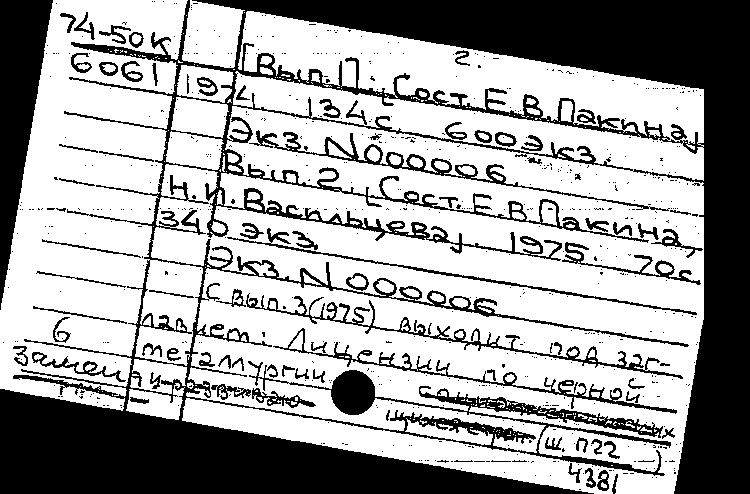 2.
74-50к
6061
[Вып. 1]. [Сост. Е.В. Пакина]
1974. 134 с. 600 экз.
Экз. N 000006.
Вып. 2. [Сост. Е.В. Пакина,
Н.И. Васильцева]. 1975. 70 с.
340 экз.
Экз. N 000006
С вып. 3 (1975) выходит под заг-
лавием: Лицензии по черной
металлургии
6
(Ш. П22
4381)